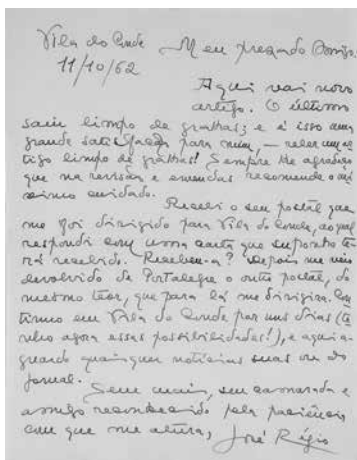 Vila do Conde Meu prezado Amigo:
11/10/62
Aqui vai novo
artigo. O último
saíu limpo de gralhas; e é isso uma
grande satisfação para mim, — reler um ar
tigo limpo de gralhas! Sempre lhe agradeço
que na revisão e emendas recomende o má
ximo cuidado.
Recebi o seu postal que
me foi dirigido para Vila do Conde, ao qual
respondi com uma carta que suponho te
rá recebido. Recebeu-a? Depois me veio
devolvido de Portalegre o outro postal, do
mesmo teor, que para lá me dirigira. Con
tinuo em Vila do Conde por uns dias (te
nho agora essas possibilidades!), e aqui a-
guardo quaisquer notícias suas ou do
jornal.
Sem mais, seu camarada e
amigo reconhecido pela paciência
com que me atura, José Régio